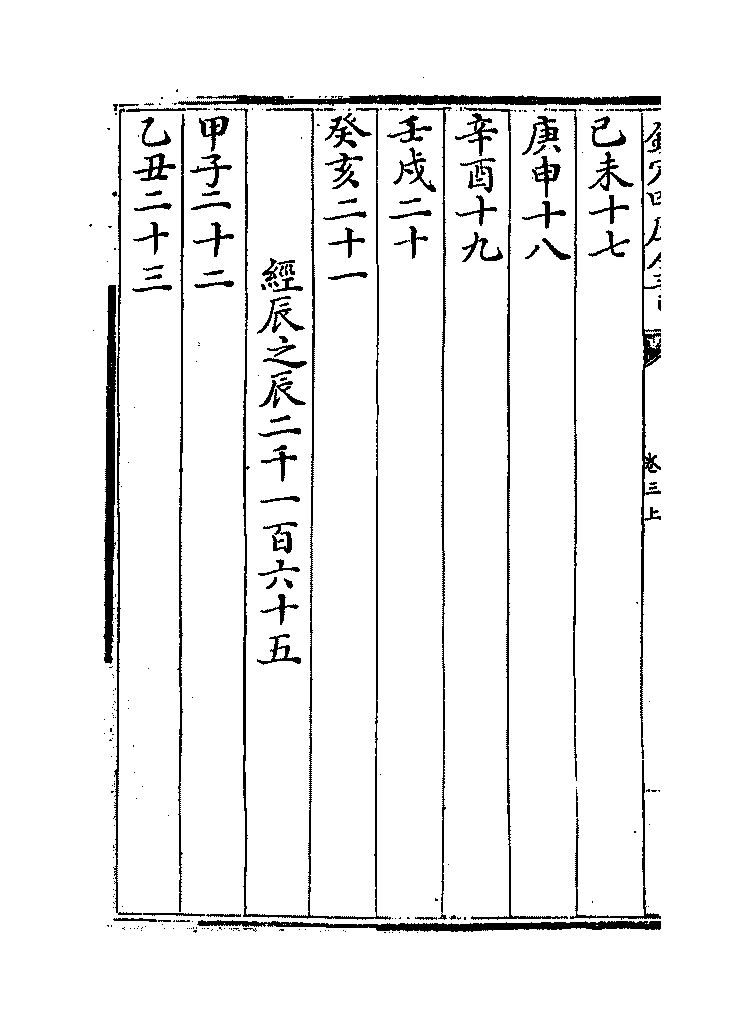 己未十七
庚申十八
辛酉十九
壬戌二十
癸亥二十一
經辰之辰二千一百六十五
甲子二十二
乙丑二十三
卷三上